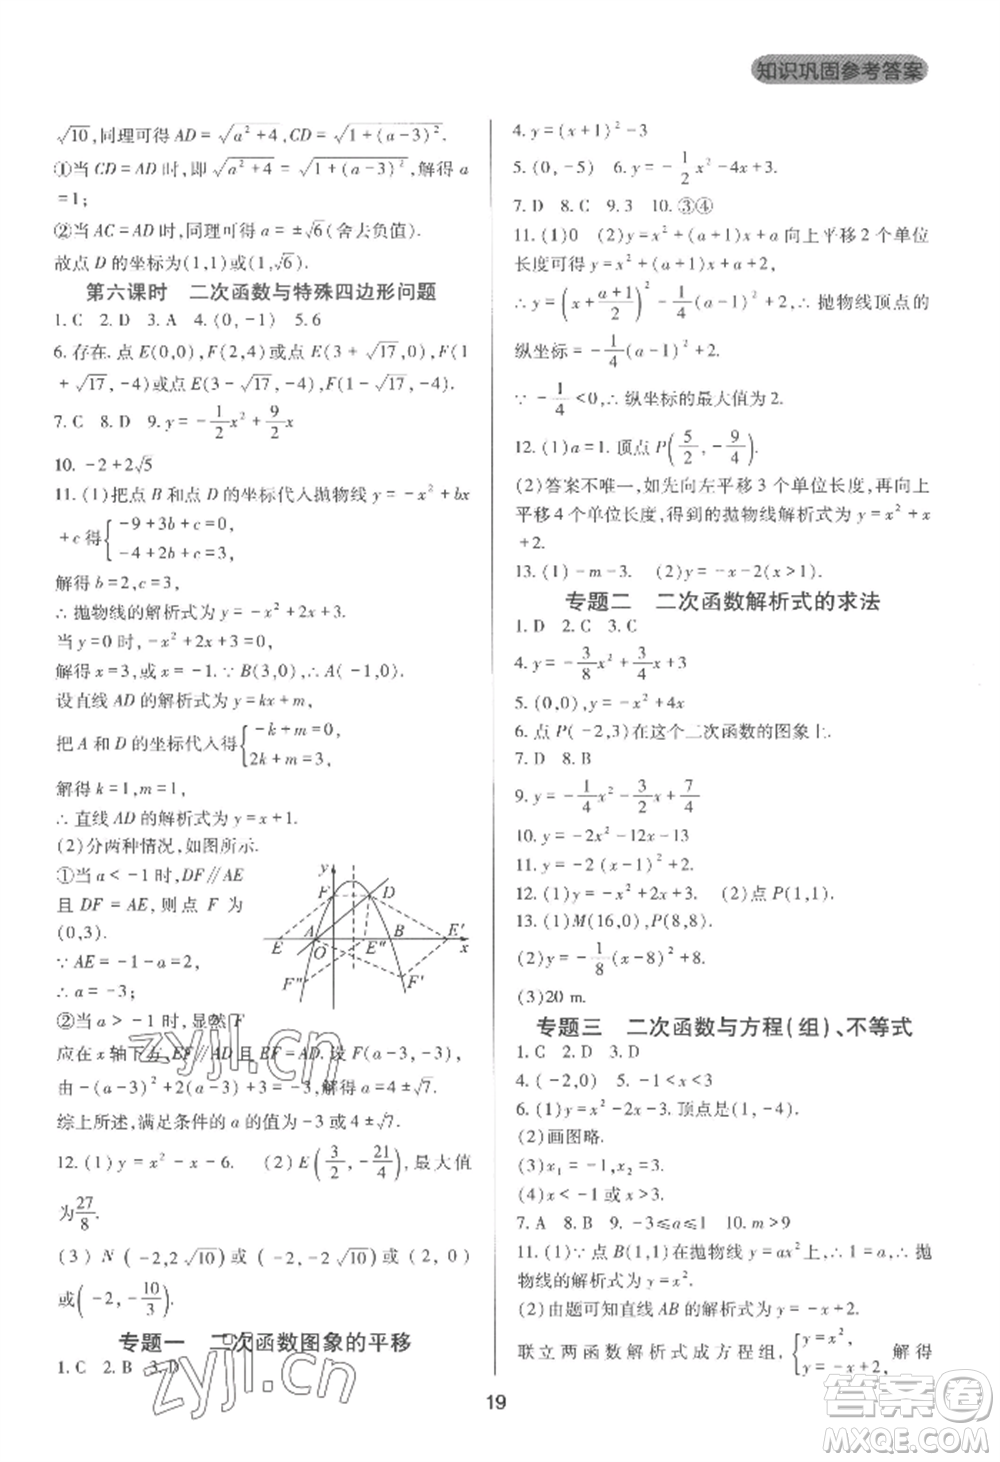 知识巩固参考答案
√10,同理可得 AD=√(a²+4),CD=√(1+(a-3)²).
①当 CD=AD 时,即√(a²+4)=√(1+(a-3)²),解得 a
=1;
②当 AC=AD 时,同理可得 a=±√6(舍去负值).
故点 D 的坐标为(1,1)或(1,√6).
第六课时 二次函数与特殊四边形问题
1. C 2. D 3. A 4. (0,-1) 5. 6
6. 存在. 点 E(0,0),F(2,4)或点 E(3+√17,0),F(1
+√17,-4)或点 E(3-√17,0),F(1-√17,-4).
7. C 8. D 9. y=-1/2x²+9/2x
10. -2+2√5
11. (1)把点 B 和点 D 的坐标代入抛物线 y=-x²+bx
+c 得{-9+3b+c=0, -4+2b+c=3,
解得 b=2,c=3,
∴抛物线的解析式为 y=-x²+2x+3;
当 y=0 时,-x²+2x+3=0,
解得 x=3,或 x=-1. ∵B(3,0),∴A(-1,0).
设直线 AD 的解析式为 y=kx+m,
把 A 和 D 的坐标代入得{-k+m=0, 2k+m=3,
解得 k=1,m=1,
∴直线 AD 的解析式为 y=x+1.
(2)分两种情况,如图所示.
①当 a<-1 时,DF∥AE
且 DF=AE,则点 F 为
(0,3).
∵AE=-1-a=2,
∴a=-3;
②当 a>-1 时,显然 F
应在 x 轴下方,EF∥AD 且 EF=AD. 设 F(a-3,-3),
由-(a-3)²+2(a-3)+3=-3,解得 a=4±√7.
综上所述,满足条件的 a 的值为-3 或 4±√7.
y F D E A O E" B E' x F" F'
12. (1)y=x²-x-6. (2)E(3/2,-21/4),最大值
为27/8.
(3) N (-2,2√10)或(-2,-2√10)或(-2,2)
或(-2,-10/3).
专题一 二次函数图象的平移
1. C 2. B 3. D
4. y=(x+1)²-3
5. (0,-5) 6. y=-1/2x²-4x+3.
7. D 8. C 9. 3 10. ③④
11. (1)0 (2)y=x²+(a+1)x+a 向上平移 2 个单位
长度可得 y=x²+(a+1)x+a+2,
∴y=(x+(a+1)/2)²-1/4(a-1)²+2,∴抛物线顶点的
纵坐标=-1/4(a-1)²+2.
∵-1/4<0,∴纵坐标的最大值为 2.
12. (1)a=1. 顶点 P(5/2,-9/4).
(2)答案不唯一,如先向左平移 3 个单位长度,再向上
平移 4 个单位长度,得到的抛物线解析式为 y=x²+x
+2.
13. (1)-m-3. (2)y=-x-2(x>1).
专题二 二次函数解析式的求法
1. D 2. C 3. C
4. y=-3/8x²+3/4x+3
5. (0,0),y=-x²+4x
6. 点 P(-2,3)在这个二次函数的图象上.
7. D 8. B
9. y=-1/4x²-3/2x+7/4
10. y=-2x²-12x-13
11. y=-2(x+2)²-1
12. (1)y=-x²+2x. (2)点 P(1,1).
13. (1)M(16,0),P(8,8).
(2)y=-1/8(x-8)²+8.
(3)20 m.
专题三 二次函数与方程(组)、不等式
1. C 2. D 3. D
4. (-2,0) 5. -1<x<3
6. (1)y=x²-2x-3. 顶点是(1,-4).
(2)画图略.
(3)x₁=-1,x₂=3.
(4)x<-1 或 x>3.
7. A 8. B 9. -3≤a≤1 10. m>9
11. (1)∵点 B(1,1)在抛物线 y=ax²上,∴1=a,∴抛
物线的解析式为 y=x²
(2)由题可知直线 AB 的解析式为 y=-x+2.
联立两函数解析式成方程组,{y=x², y=-x+2, 解得
19
zyjl.cn
zyjl.cn
答案圈
MXQE.COM